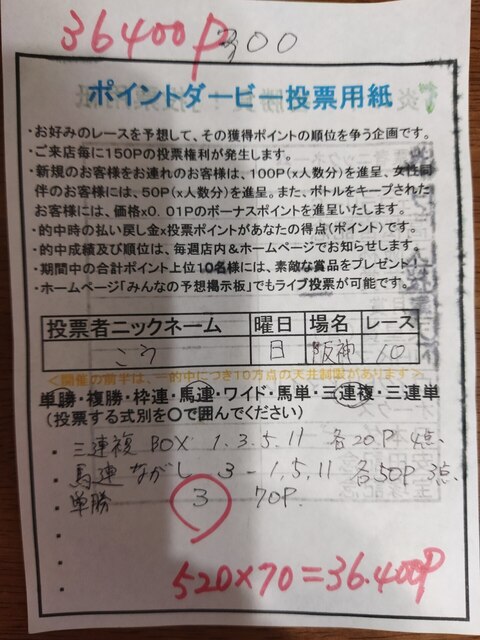 36400P 300
ポイントダービー投票用紙
・お好みのレースを予想して、その獲得ポイントの順位を争う企画です。
・ご来店毎に150Pの投票権利が発生します。
・新規のお客様をお連れのお客様は、100P(x人数分)を進呈、女性同
伴のお客様には、50P(x人数分)を進呈。また、ボトルをキープされた
お客様には、価格x0.01Pのボーナスポイントを進呈いたします。
・的中時の払い戻し金x投票ポイントがあなたの得点(ポイント)です。
・的中成績及び順位は、毎週店内&ホームページでお知らせします。
・期間中の合計ポイント上位10名様には、素敵な賞品をプレゼント。
・ホームページ「みんなの予想掲示板」でもライブ投票が可能です。
投票者ニックネーム 曜日 場名 レース
こう 日 阪神 10
<開催の前半は、一的中につき10万点の天井制製があります>
単勝・複勝・枠連・馬連・ワイド・馬単・三連複・三連単
(投票する式別を○で囲んでください)
・三連複 BOX 1.3.5.11 各20P 4点.
・馬連 ながし 3-1,5,11 各50P 3点.
・単勝 3 70P.
520×70=36.400P